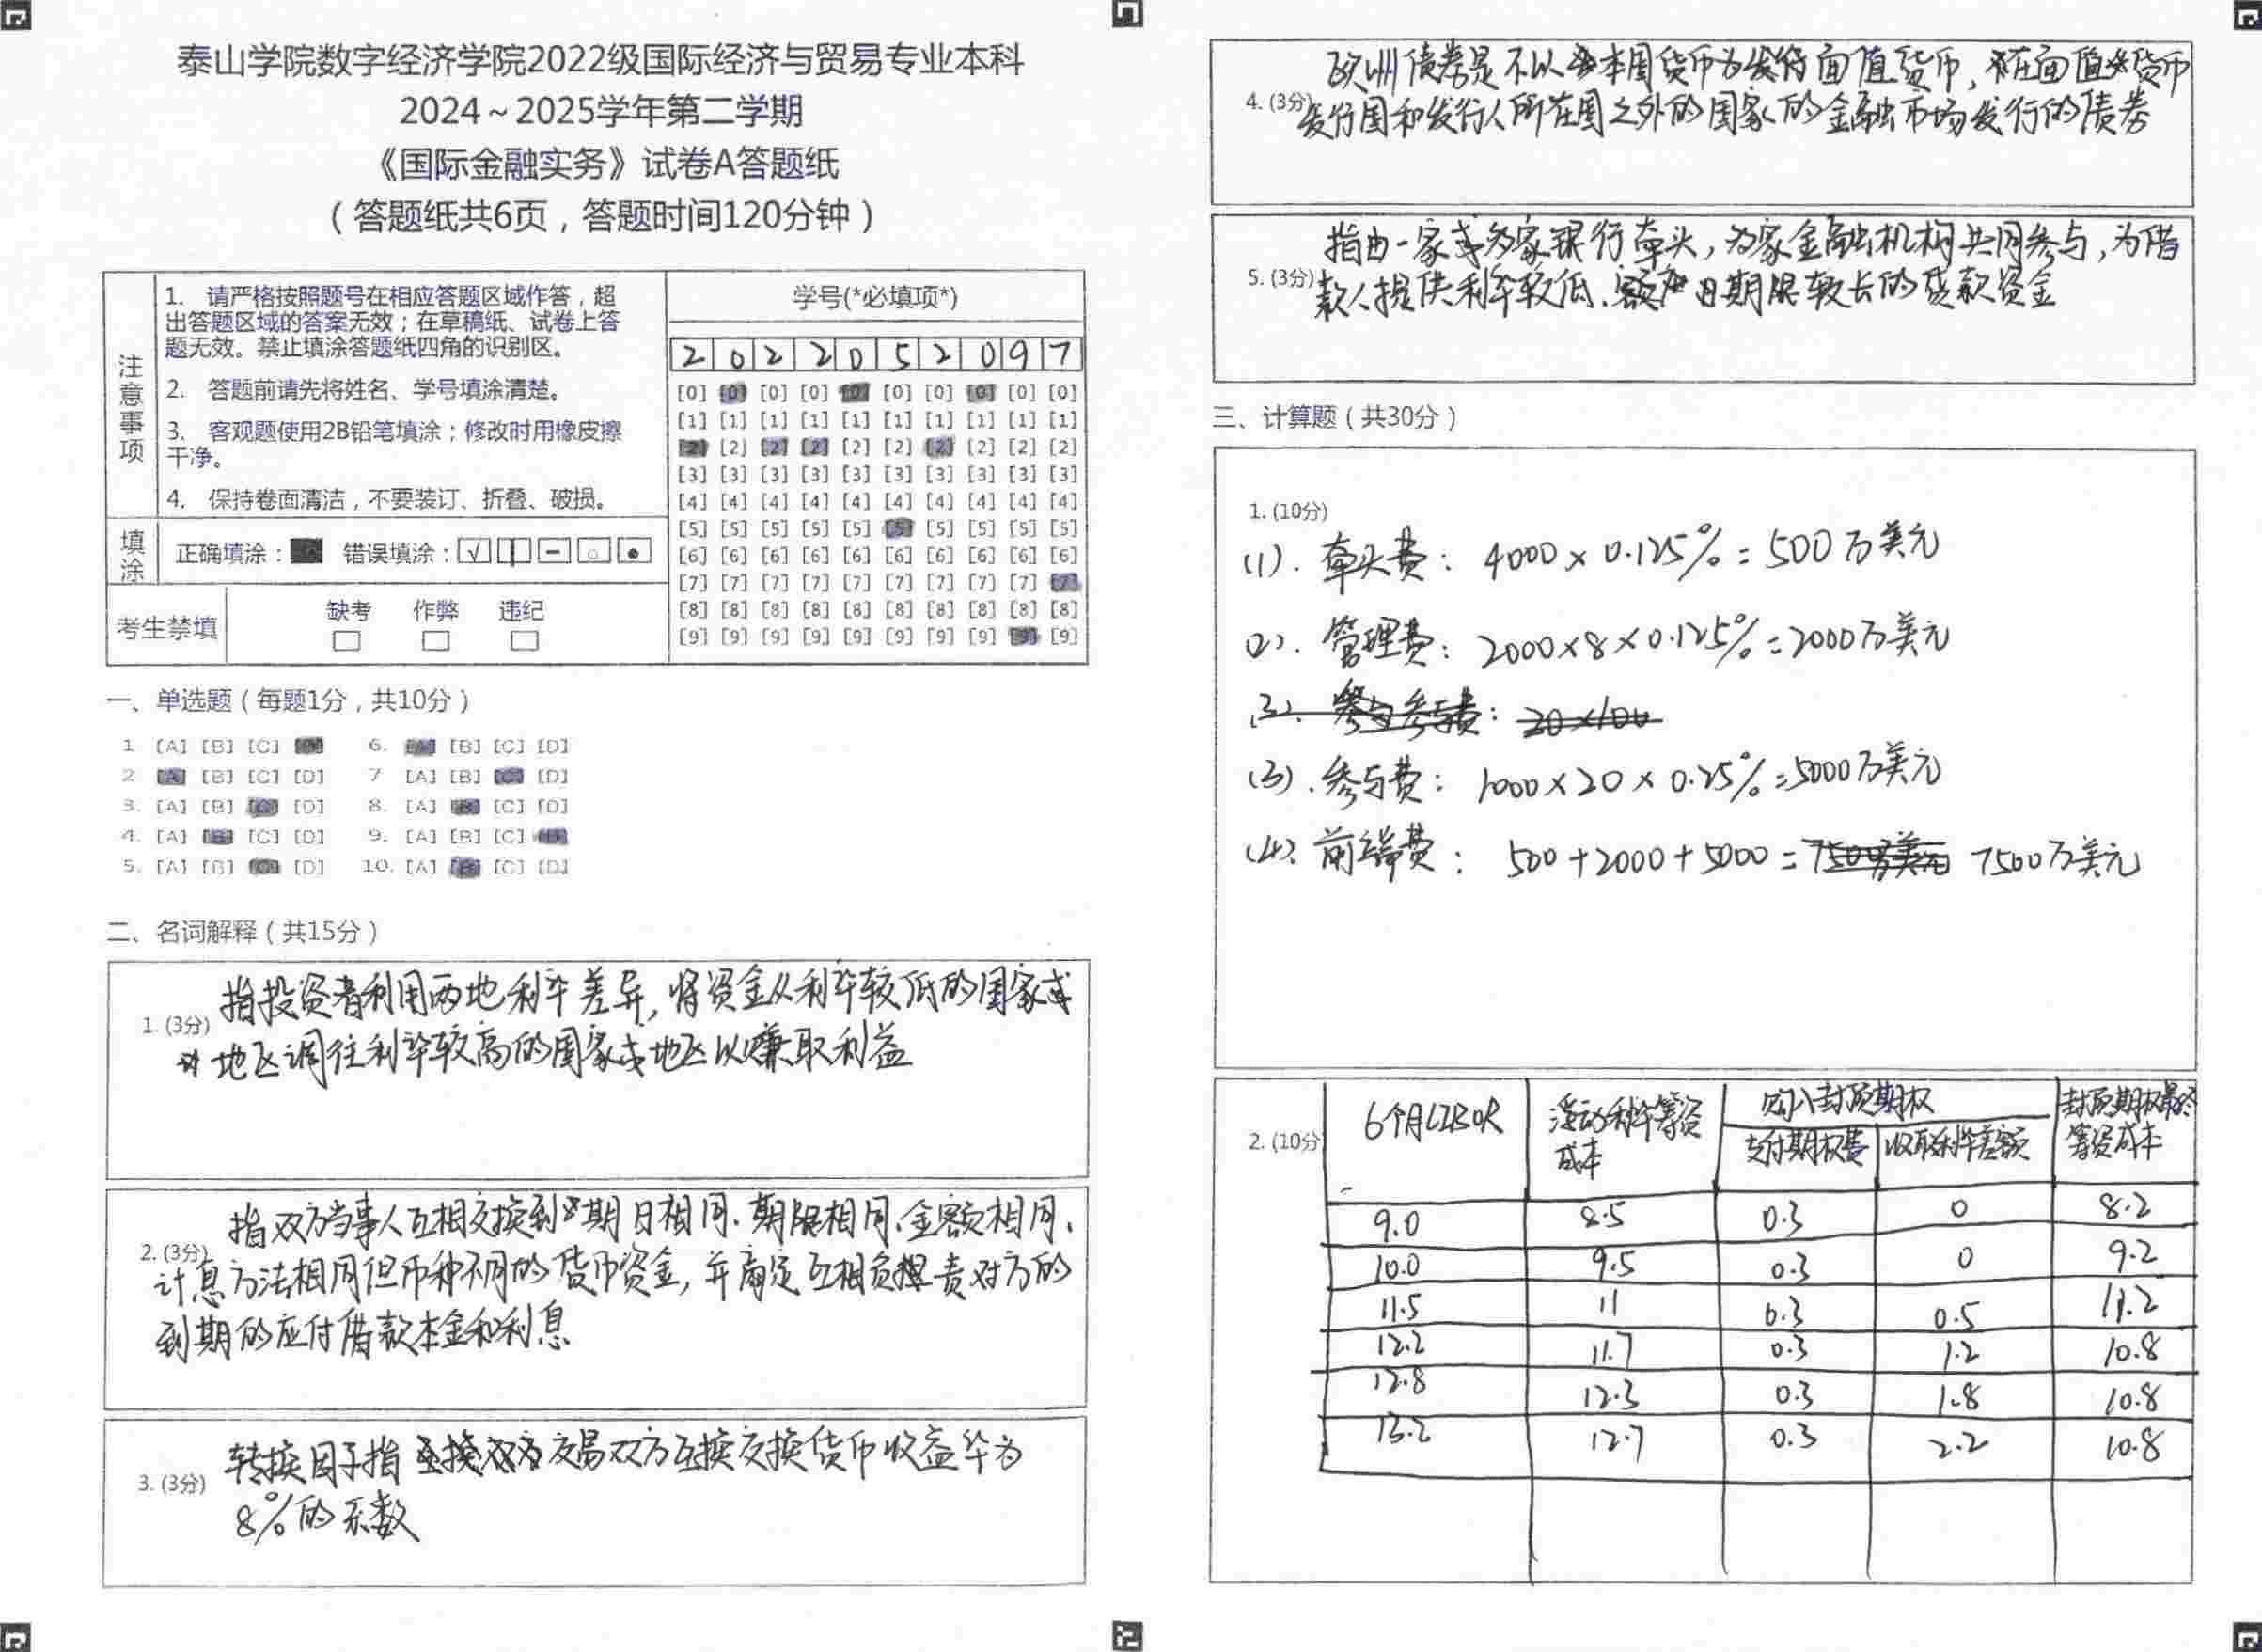 泰山学院数字经济学院2022级国际经济与贸易专业本科
2024～2025学年第二学期
《国际金融实务》试卷A答题纸
（答题纸共6页，答题时间120分钟）
注意事项
1. 请严格按照题号在相应答题区域作答，超
出答题区域的答案无效；在草稿纸、试卷上答
题无效。禁止填涂答题纸四角的识别区。
2. 答题前请先将姓名、学号填涂清楚。
3. 客观题使用2B铅笔填涂；修改时用橡皮擦
干净。
4. 保持卷面清洁，不要装订、折叠、破损。
填涂
正确填涂： 错误填涂：
考生禁填
缺考 作弊 违纪
学号(*必填项*)
2 0 2 2 0 5 2 0 9 7
[0] [0] [0] [0] [0] [0] [0] [0] [0] [0]
[1] [1] [1] [1] [1] [1] [1] [1] [1] [1]
[2] [2] [2] [2] [2] [2] [2] [2] [2] [2]
[3] [3] [3] [3] [3] [3] [3] [3] [3] [3]
[4] [4] [4] [4] [4] [4] [4] [4] [4] [4]
[5] [5] [5] [5] [5] [5] [5] [5] [5] [5]
[6] [6] [6] [6] [6] [6] [6] [6] [6] [6]
[7] [7] [7] [7] [7] [7] [7] [7] [7] [7]
[8] [8] [8] [8] [8] [8] [8] [8] [8] [8]
[9] [9] [9] [9] [9] [9] [9] [9] [9] [9]
一、单选题（每题1分，共10分）
1 [A] [B] [C] [D] 6. [A] [B] [C] [D]
2 [A] [B] [C] [D] 7 [A] [B] [C] [D]
3. [A] [B] [C] [D] 8. [A] [B] [C] [D]
4. [A] [B] [C] [D] 9. [A] [B] [C] [D]
5. [A] [B] [C] [D] 10. [A] [B] [C] [D]
二、名词解释（共15分）
1. (3分)
指投资者利用两地利率差异，将资金从利率较低的国家或
地区调往利率较高的国家或地区以赚取利益
2. (3分)
指双方当事人互相交换到期日相同、期限相同、金额相同、
计息方法相同但币种不同的货币资金，并商定互相负担责对方的
到期的应付借款本金和利息
3. (3分)
转换因子指 交易双方互换交换货币收益率为
8%的系数
4. (3分)
欧洲债券是不以本国货币为发行面值货币，在面值货币
发行国和发行人所在国之外的国家的金融市场发行的债券
5. (3分)
指由一家或多家银行牵头，为家金融机构共同参与，为借
款人提供利率较低、期限较长的贷款资金
三、计算题（共30分）
1. (10分)
(1). 牵头费： 4000×0.125%=500万美元
(2). 管理费： 2000×8×0.125%=2000万美元
(3). 参与费： 20×100
(3). 参与费： 1000×20×0.25%=5000万美元
(4). 前端费： 500+2000+5000=7500万美元 7500万美元
2. (10分
6个月LIBOR 浮动利率筹资成本 购入封顶期权 封顶期权最终筹资成本
支付期权费 收取利率差额
9.0 8.5 0.3 0 8.2
10.0 9.5 0.3 0 9.2
11.5 11 0.3 0.5 11.2
12.2 11.7 0.3 1.2 10.8
12.8 12.3 0.3 1.8 10.8
13.2 12.7 0.3 2.2 10.8